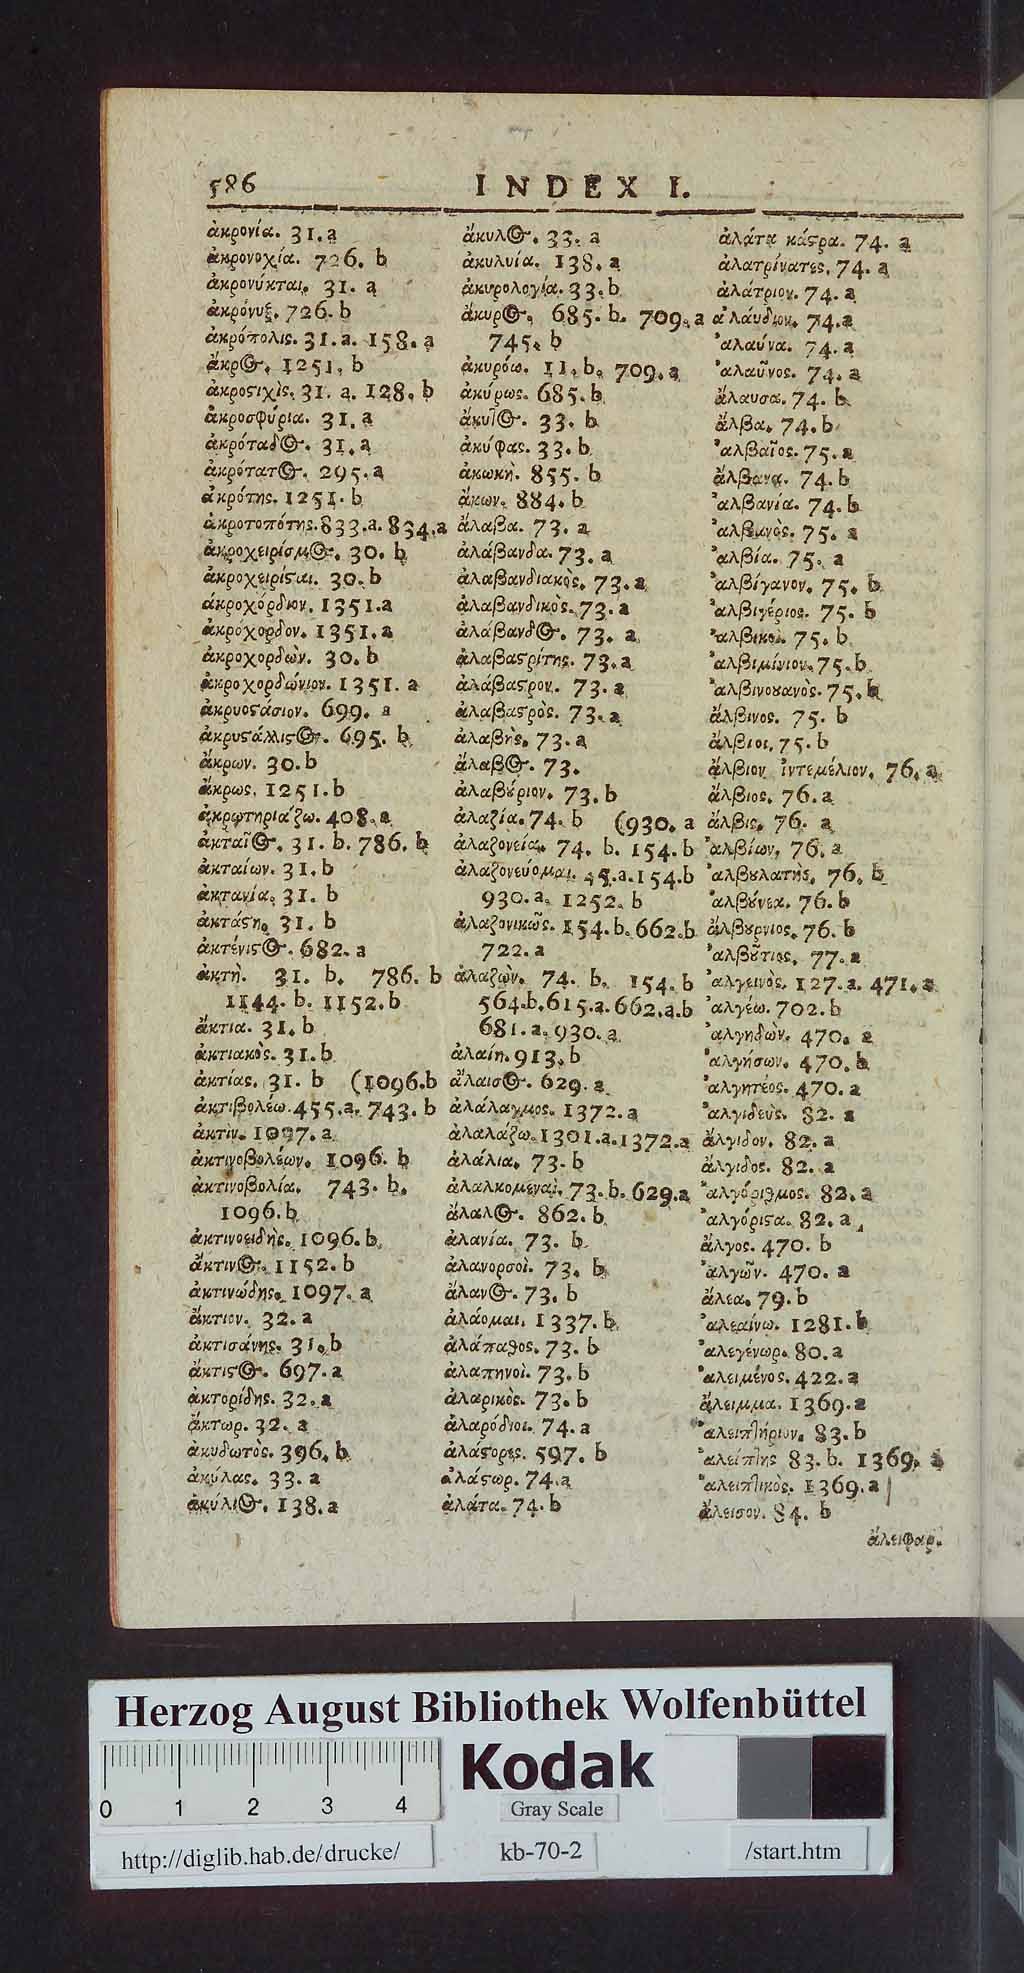 586 INDEX I.
ἀκρονία. 31. a
ἀκρονοχία. 726. b
ἀκρονύκται. 31. a
ἀκρόνυξ. 726. b
ἀκρόπολις. 31. a. 158. a
ἄκρος. 1251. b
ἀκροςιχὶς. 31. a. 128. b
ἀκροσφύρια. 31. a
ἀκρόταδος. 31. a
ἀκρότατος. 295. a
ἀκρότης. 1251. b
ἀκροτοπότης. 833. a. 834. a
ἀκροχειρίσμος. 30. b
ἀκροχειρίςαι. 30. b
ἀκροχόρδιον. 1351. a
ἀκρόχορδον. 1351. a
ἀκροχορδὼν. 30. b
ἀκροχορδώνιον. 1351. a
ἀκρυοςάσιον. 699. a
ἀκρυςάλλιςος. 695. b
ἄκρων. 30. b
ἄκρως. 1251. b
ἀκρωτηριάζω. 408. a
ἀκταῖος. 31. b. 786. b
ἀκταίων. 31. b
ἀκτανία. 31. b
ἀκτάςη. 31. b
ἀκτένιςος. 682. a
ἀκτὴ. 31. b. 786. b
1144. b. 1152. b
ἄκτια. 31. b
ἀκτιακὸς. 31. b
ἀκτίας. 31. b (1096. b
ἀκτιβολέω. 455. a. 743. b
ἀκτὶν. 1097. a
ἀκτινοβολέων. 1096. b
ἀκτινοβολία. 743. b.
1096. b
ἀκτινοειδὴς. 1096. b
ἄκτινος. 1152. b
ἀκτινώδης. 1097. a
ἄκτιον. 32. a
ἀκτισάνης. 31. b
ἄκτιςος. 697. a
ἀκτορίδης. 32. a
ἄκτωρ. 32. a
ἀκυδωτὸς. 396. b
ἀκύλας. 33. a
ἀκύλιος. 138. a
ἄκυλος. 33. a
ἀκυλυία. 138. a
ἀκυρολογία. 33. b
ἄκυρος. 685. b. 709. a
745. b
ἀκυρόω. 11. b. 709. a
ἀκύρως. 685. b
ἄκυτος. 33. b
ἀκύφας. 33. b
ἀκωκὴ. 855. b
ἄκων. 884. b
ἄλαβα. 73. a
ἀλάβανδα. 73. a
ἀλαβανδιακὸς. 73. a
ἀλαβανδικὸς. 73. a
ἀλάβανδος. 73. a
ἀλαβαςρίτης. 73. a
ἀλάβαςρον. 73. a
ἀλαβαςρὸς. 73. a
ἀλαβὴς. 73. a
ἄλαβος. 73.
ἀλαβύριον. 73. b
ἀλαζία. 74. b (930. a
ἀλαζονεία. 74. b. 154. b
ἀλαζονεύομαι. a. 154. b
930. a. 1252. b
ἀλαζονικῶς. 154. b. 662. b
722. a
ἀλαζὼν. 74. b. 154. b
564. b. 615. a. 662. a. b
681. a. 930. a
ἀλαίη. 913. b
ἄλαισος. 629. a
ἀλάλαγμος. 1372. a
ἀλαλάζω. 1301. a. 1372. a
ἀλάλια. 73. b
ἀλαλκομεναὶ. 73. b. 629. a
ἄλαλος. 862. b
ἀλανία. 73. b
ἀλανορσοὶ. 73. b
ἄλανος. 73. b
ἀλάομαι. 1337. b
ἀλάπαθος. 73. b
ἀλαπηνοὶ. 73. b
ἀλαρικὸς. 73. b
ἀλαρόδιοι. 74. a
ἀλάςορες. 597. b
ἀλάςωρ. 74. a
ἀλάτα. 74. b
ἀλάτα κάςρα. 74. a
ἀλατρίνατες. 74. a
ἀλάτριον. 74. a
ἀλάυδιον. 74. a
ἀλαύνα. 74. a
ἀλαῦνος. 74. a
ἄλαυσα. 74. b
ἄλβα. 74. b
ἀλβαῖος. 75. a
ἄλβανα. 74. b
ἀλβανία. 74. b
ἀλβανὸς. 75. a
ἀλβία. 75. a
ἀλβίγανον. 75. b
ἀλβιγέριος. 75. b
ἀλβικοι. 75. b
ἀλβιμίνιον. 75. b
ἀλβινουανὸς. 75. b
ἄλβινος. 75. b
ἄλβιοι. 75. b
ἄλβιον ἰντεμέλιον. 76. a
ἄλβιος. 76. a
ἄλβις. 76. a
ἀλβίων. 76. a
ἀλβȣλατὴς. 76. b
ἀλβȣ́νεα. 76. b
ἄλβȣρνιος. 76. b
ἀλβȣ͂τιος. 77. a
ἀλγεινὸς. 127. a. 471. a
ἀλγέω. 702. b
ἀλγηδὼν. 470. a
ἀλγήσων. 470. b
ἀλγητέος. 470. a
ἀλγιδεὺς. 82. a
ἄλγιδον. 82. a
ἄλγιδος. 82. a
ἀλγόριθμος. 82. a
ἀλγόριςα. 82. a
ἄλγος. 470. b
ἀλγῶν. 470. a
ἄλεα. 79. b
ἀλεαίνω. 1281. b
ἀλεγένωρ. 80. a
ἀλειμένος. 422. a
ἄλειμμα. 1369. a
ἀλειπτήριον. 83. b
ἀλείπτης 83. b. 1369. a
ἀλειπτικὸς. 1369. a
ἄλεισον. 84. b
ἄλειφαρ.
Herzog August Bibliothek Wolfenbüttel
0 1 2 3 4
Kodak
Gray Scale
http://diglib.hab.de/drucke/ kb-70-2 /start.htm